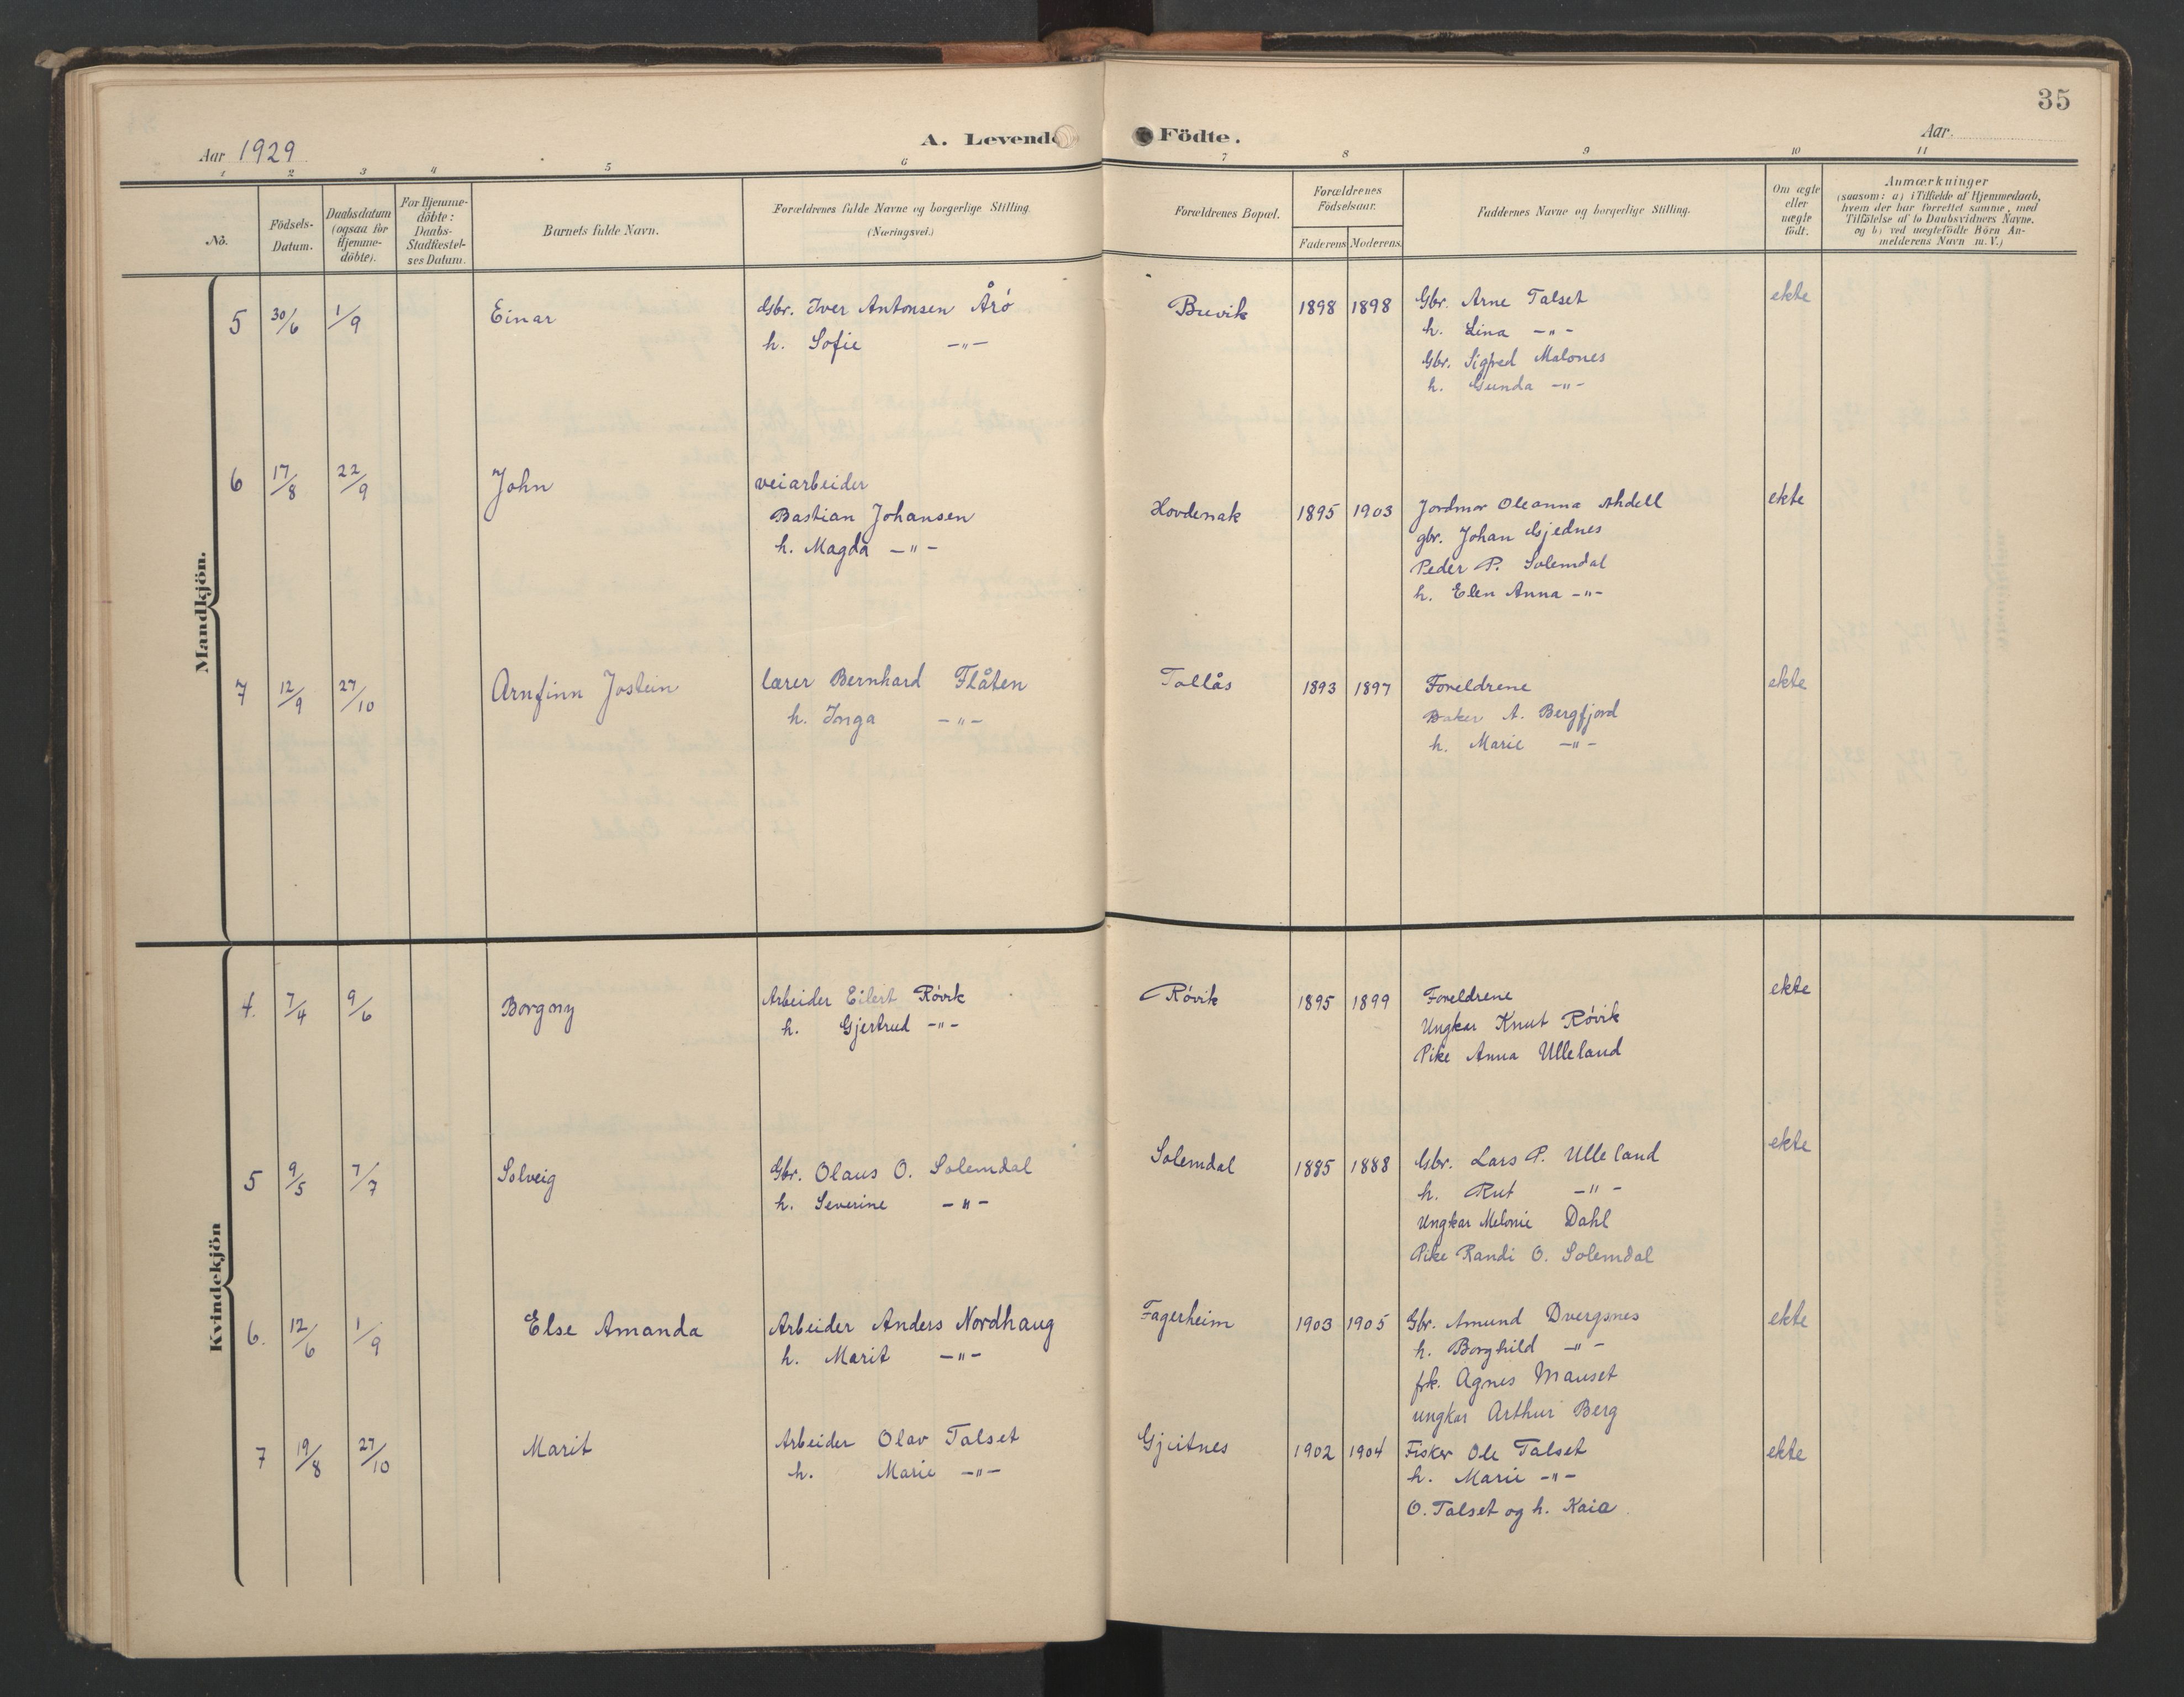 35
Aar 1929
A. Levende Födte.
Aar
1 2 3 4 5 6 7 8 9 10 11
No.
Födsels-Datum.
Daabsdatum (ogsaa for Hjemme-döbte).
For Hjemme-döbte: Daabs-Stadfæstel-ses Datum.
Barnets fulde Navn.
Forældrenes fulde Navne og borgerlige Stilling. (Næringsvei.)
Forældrenes Bopæl.
Forældrenes Födselsaar.
Faderens Moderens
Faddernes Navne og borgerlige Stilling.
Om ægte eller uægte födt.
Anmærkninger
(saasom: a) i Tilfælde af Hjemmedaab,
hvem der har forrettet samme, med
Tilföielse af to Daabsvidners Navne,
og b) ved uægtefödte Börn An-
melderens Navn m. V.)
Mandkjön.
5 30/6 1/9 Einar Gbr. Iver Antonsen Årö Buvik 1898 1898 Gbr. Arne Talset ekte
h. Sofie -"- h. Lina -"-
Gbr. Sigfred Malones
h. Gunda -"-
6 17/8 22/9 John veiarbeider Hovdenak 1895 1903 Jordmor Oleanna ekte
Bastian Johansen gbr. Johan Gjednes
h. Magda -"- Peder P. Solemdal
h. Elen Anna -"-
7 12/9 27/10 Arnfinn Jostein lærer Bernhard Flåten Tollås 1893 1897 Foreldrene ekte
h. Inga -"- Baker A. Bergfjord
h. Marie -"-
Kvindekjön
4. 7/4 9/6 Borgny Arbeider Eilert Rövik Rövik 1895 1899 Foreldrene ekte
h. Gjertrud -"- Ungkar Knut Rövik
Pike Anna Ulleland
5 9/5 7/7 Solveig Gbr. Olaus O. Solemdal Solemdal 1885 1888 Gbr. Lars P. Ulleland ekte
h. Severine -"- h. Rut -"-
Ungkar Melonie Dahl
Pike Randi O. Solemdal
6. 12/6 1/9 Else Amanda Arbeider Anders Nordhaug Fagerheim 1903 1905 Gbr. Amund Dvergsnes ekte
h. Marit -"- h. Borghild -"-
frk. Agnes Mauset
ungkar Arthur Berg
7 19/8 27/10 Marit Arbeider Olav Talset Gjeitnes 1902 1904 Fisker Ole Talset ekte
h. Marie -"- h. Marie -"-
O. Talset og h. Kaia